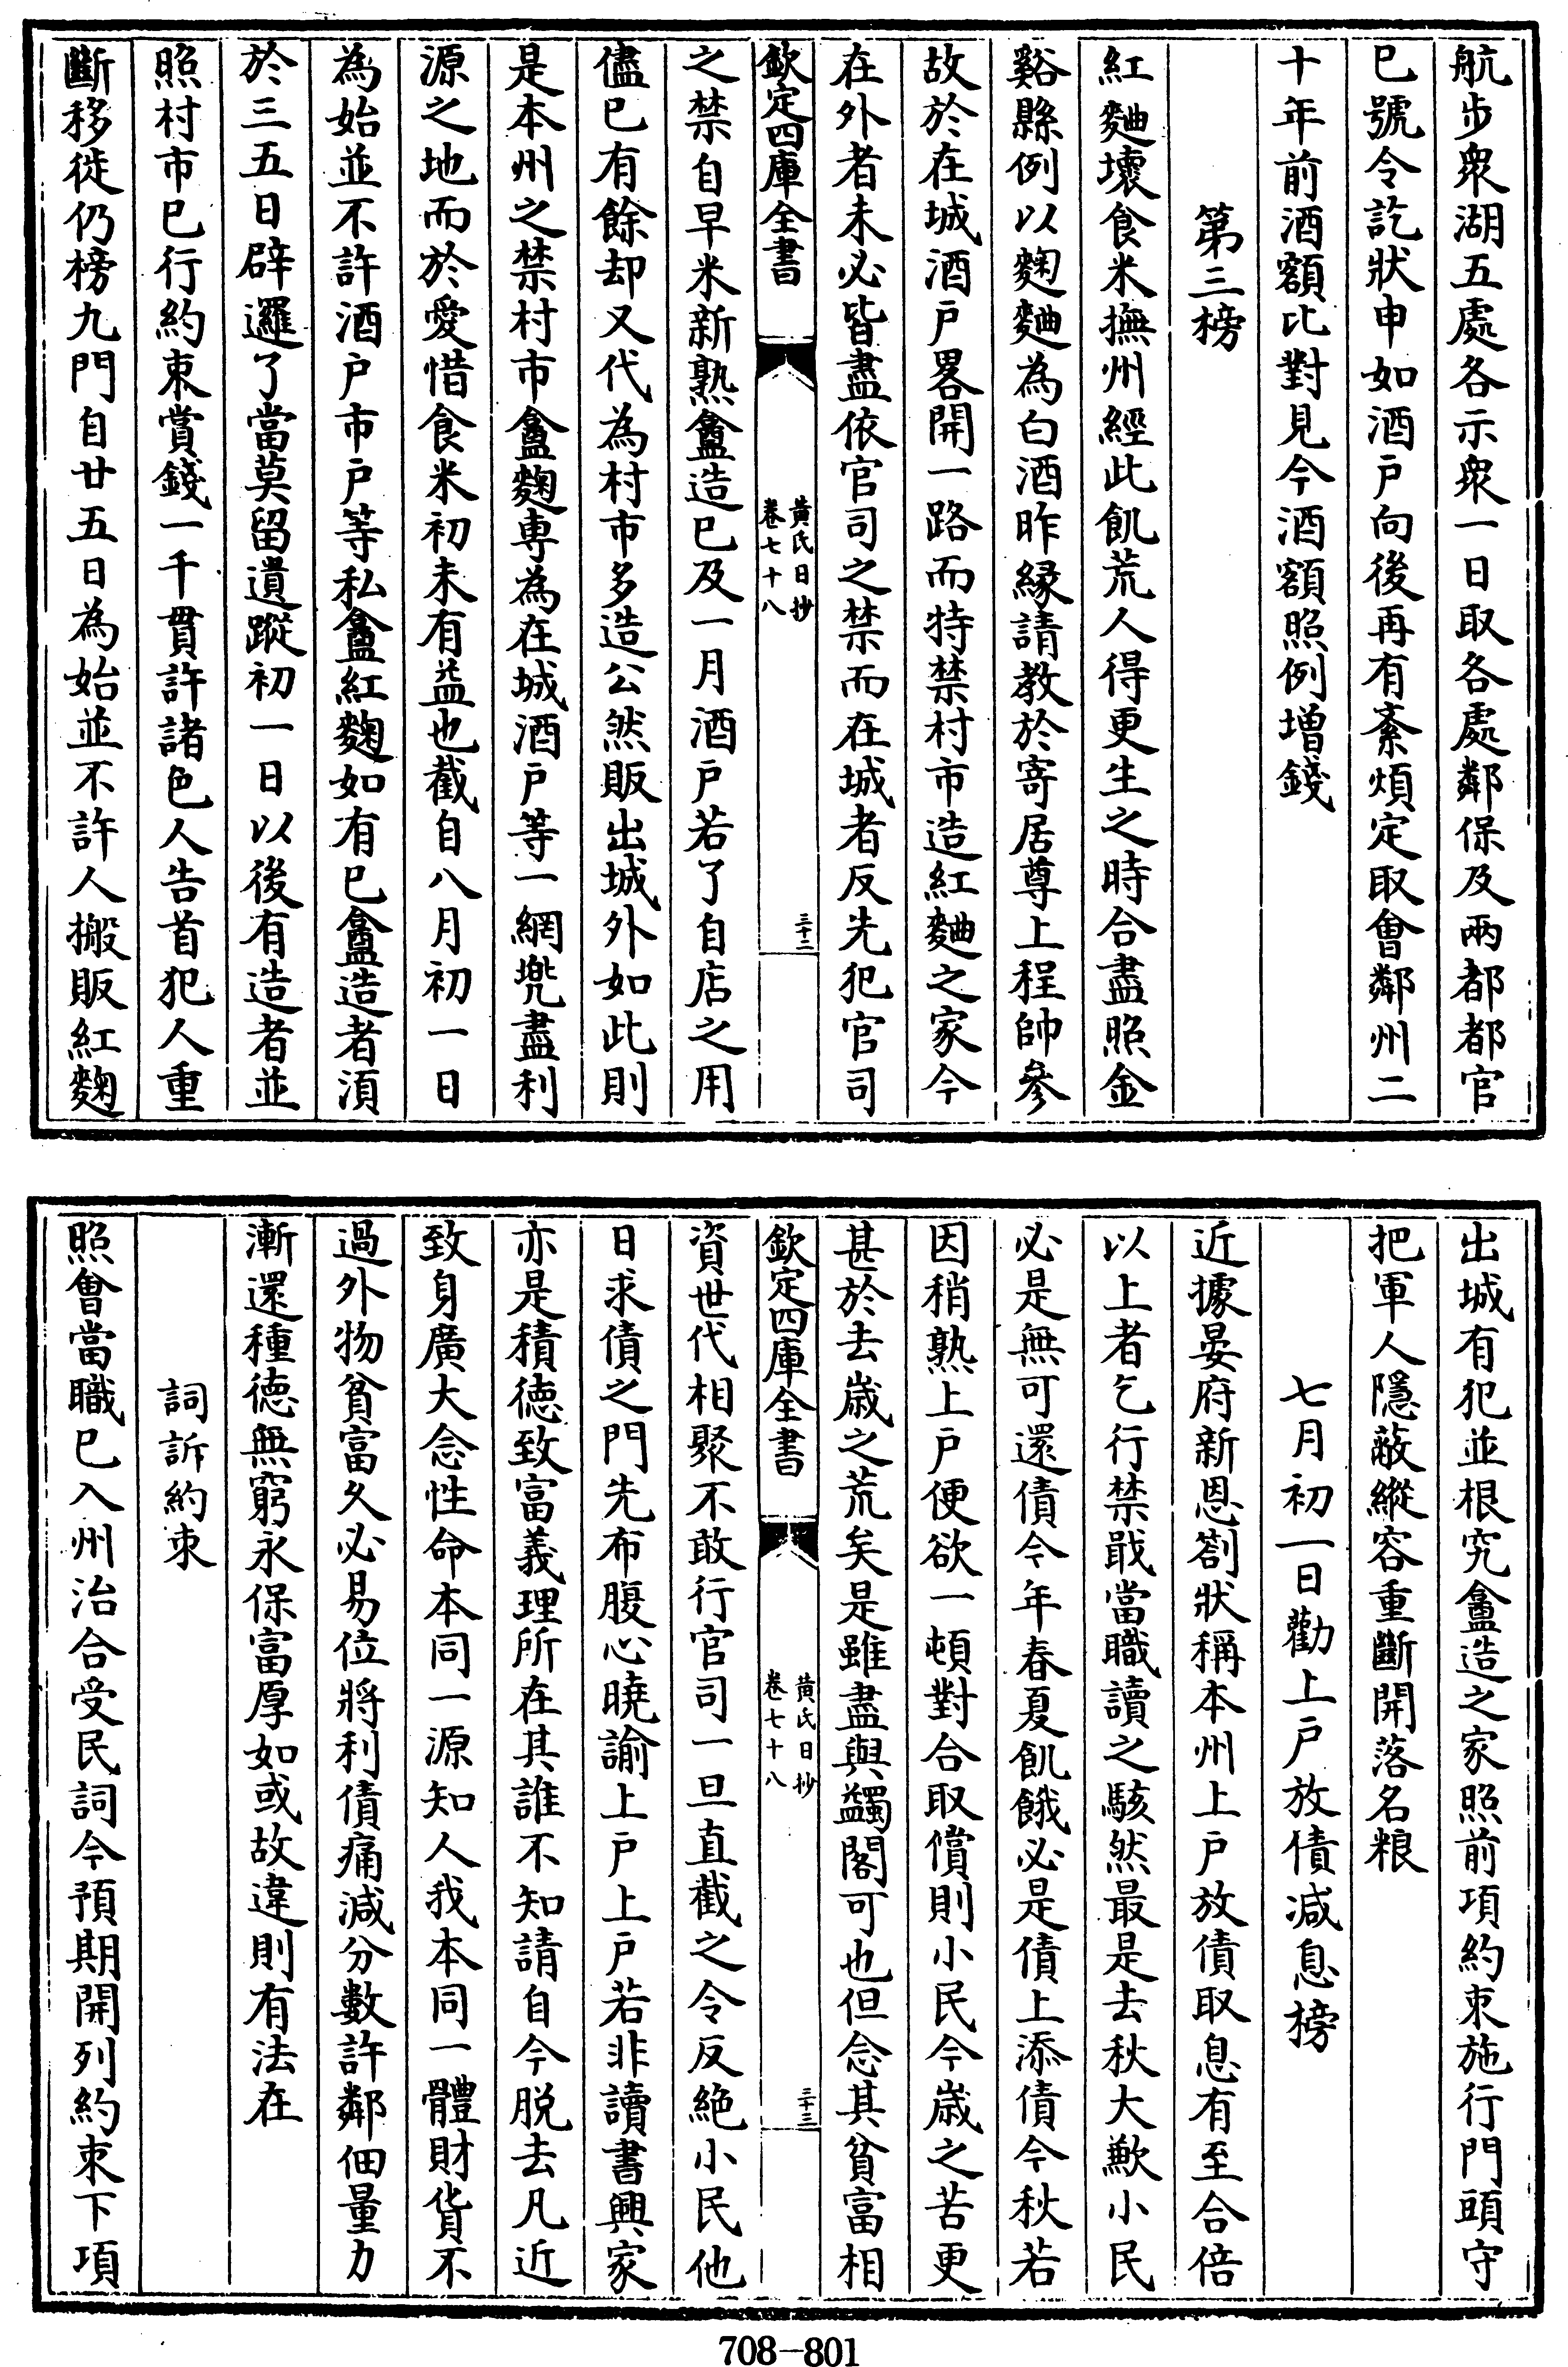 航步衆湖五處各示衆一日取各處鄰保及兩都都官
已號令訖狀申如酒户向後再有紊煩定取㑹鄰州二
十年前酒額比對見今酒額照例増錢
第三榜
紅麯壞食米撫州經此飢荒人得更生之時合盡照金
谿縣例以麴麯為白酒昨縁請教於寄居尊上程帥參
故於在城酒户畧開一路而特禁村市造紅麯之家今
在外者未必皆盡依官司之禁而在城者反先犯官司
欽定四庫全書
黄氏日抄
卷七十八
三十二
之禁自早米新熟盦造已及一月酒户若了自店之用
儘已有餘却又代為村市多造公然販出城外如此則
是本州之禁村市盦麴専為在城酒户等一網兠盡利
源之地而於愛惜食米初未有益也截自八月初一日
為始並不許酒户市户等私盦紅麴如有已盦造者湏
於三五日辟邏了當莫留遺蹤初一日以後有造者並
照村市已行約束賞錢一千貫許諸色人告首犯人重
斷移徙仍榜九門自廿五日為始並不許人搬販紅麴
出城有犯並根究盦造之家照前項約束施行門頭守
把軍人隱蔽縱容重斷開落名粮
七月初一日勸上户放債減息榜
近據晏府新恩劄狀稱本州上户放債取息有至合倍
以上者乞行禁戢當職讀之駭然最是去秋大歉小民
必是無可還債今年春夏飢餓必是債上添債今秋若
因稍熟上户便欲一頓對合取償則小民今歳之苦更
甚於去歳之荒矣是雖盡與蠲閣可也但念其貧富相
欽定四庫全書
黄氏日抄
卷七十八
三十三
資世代相聚不敢行官司一旦直截之令反絶小民他
日求債之門先布腹心曉諭上户上户若非讀書興家
亦是積徳致富義理所在其誰不知請自今脱去凡近
致身廣大念性命本同一源知人我本同一體財貨不
過外物貧富久必易位將利債痛減分數許鄰佃量力
漸還種徳無窮永保富厚如或故違則有法在
詞訴約束
照㑹當職已入州治合受民詞今預期開列約束下項
708-801